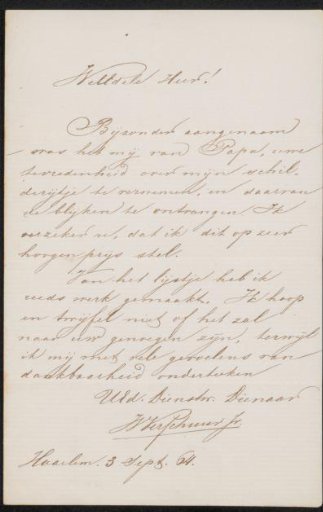 WelEdele Heer!
Byzonder aangenaam
was het mij van Papa, uwe
tevredenheid over mijn schil-
derijtje te vernemen, en daarvan
de blijken te ontvangen Ik
verzeker u, dat ik dit op zeer
hoogen prys stel.
Van het lijstje heb ik
reeds werk gemaakt. Ik hoop
en twijfel niet of het zal
naar uw genoegen zijn, terwijl
ik mij met vele gevoelens van
dankbaarheid onderteken
UEd. Dienstw. Dienaar
WVerschuur Jr
Haarlem. 3 Sept. 64.